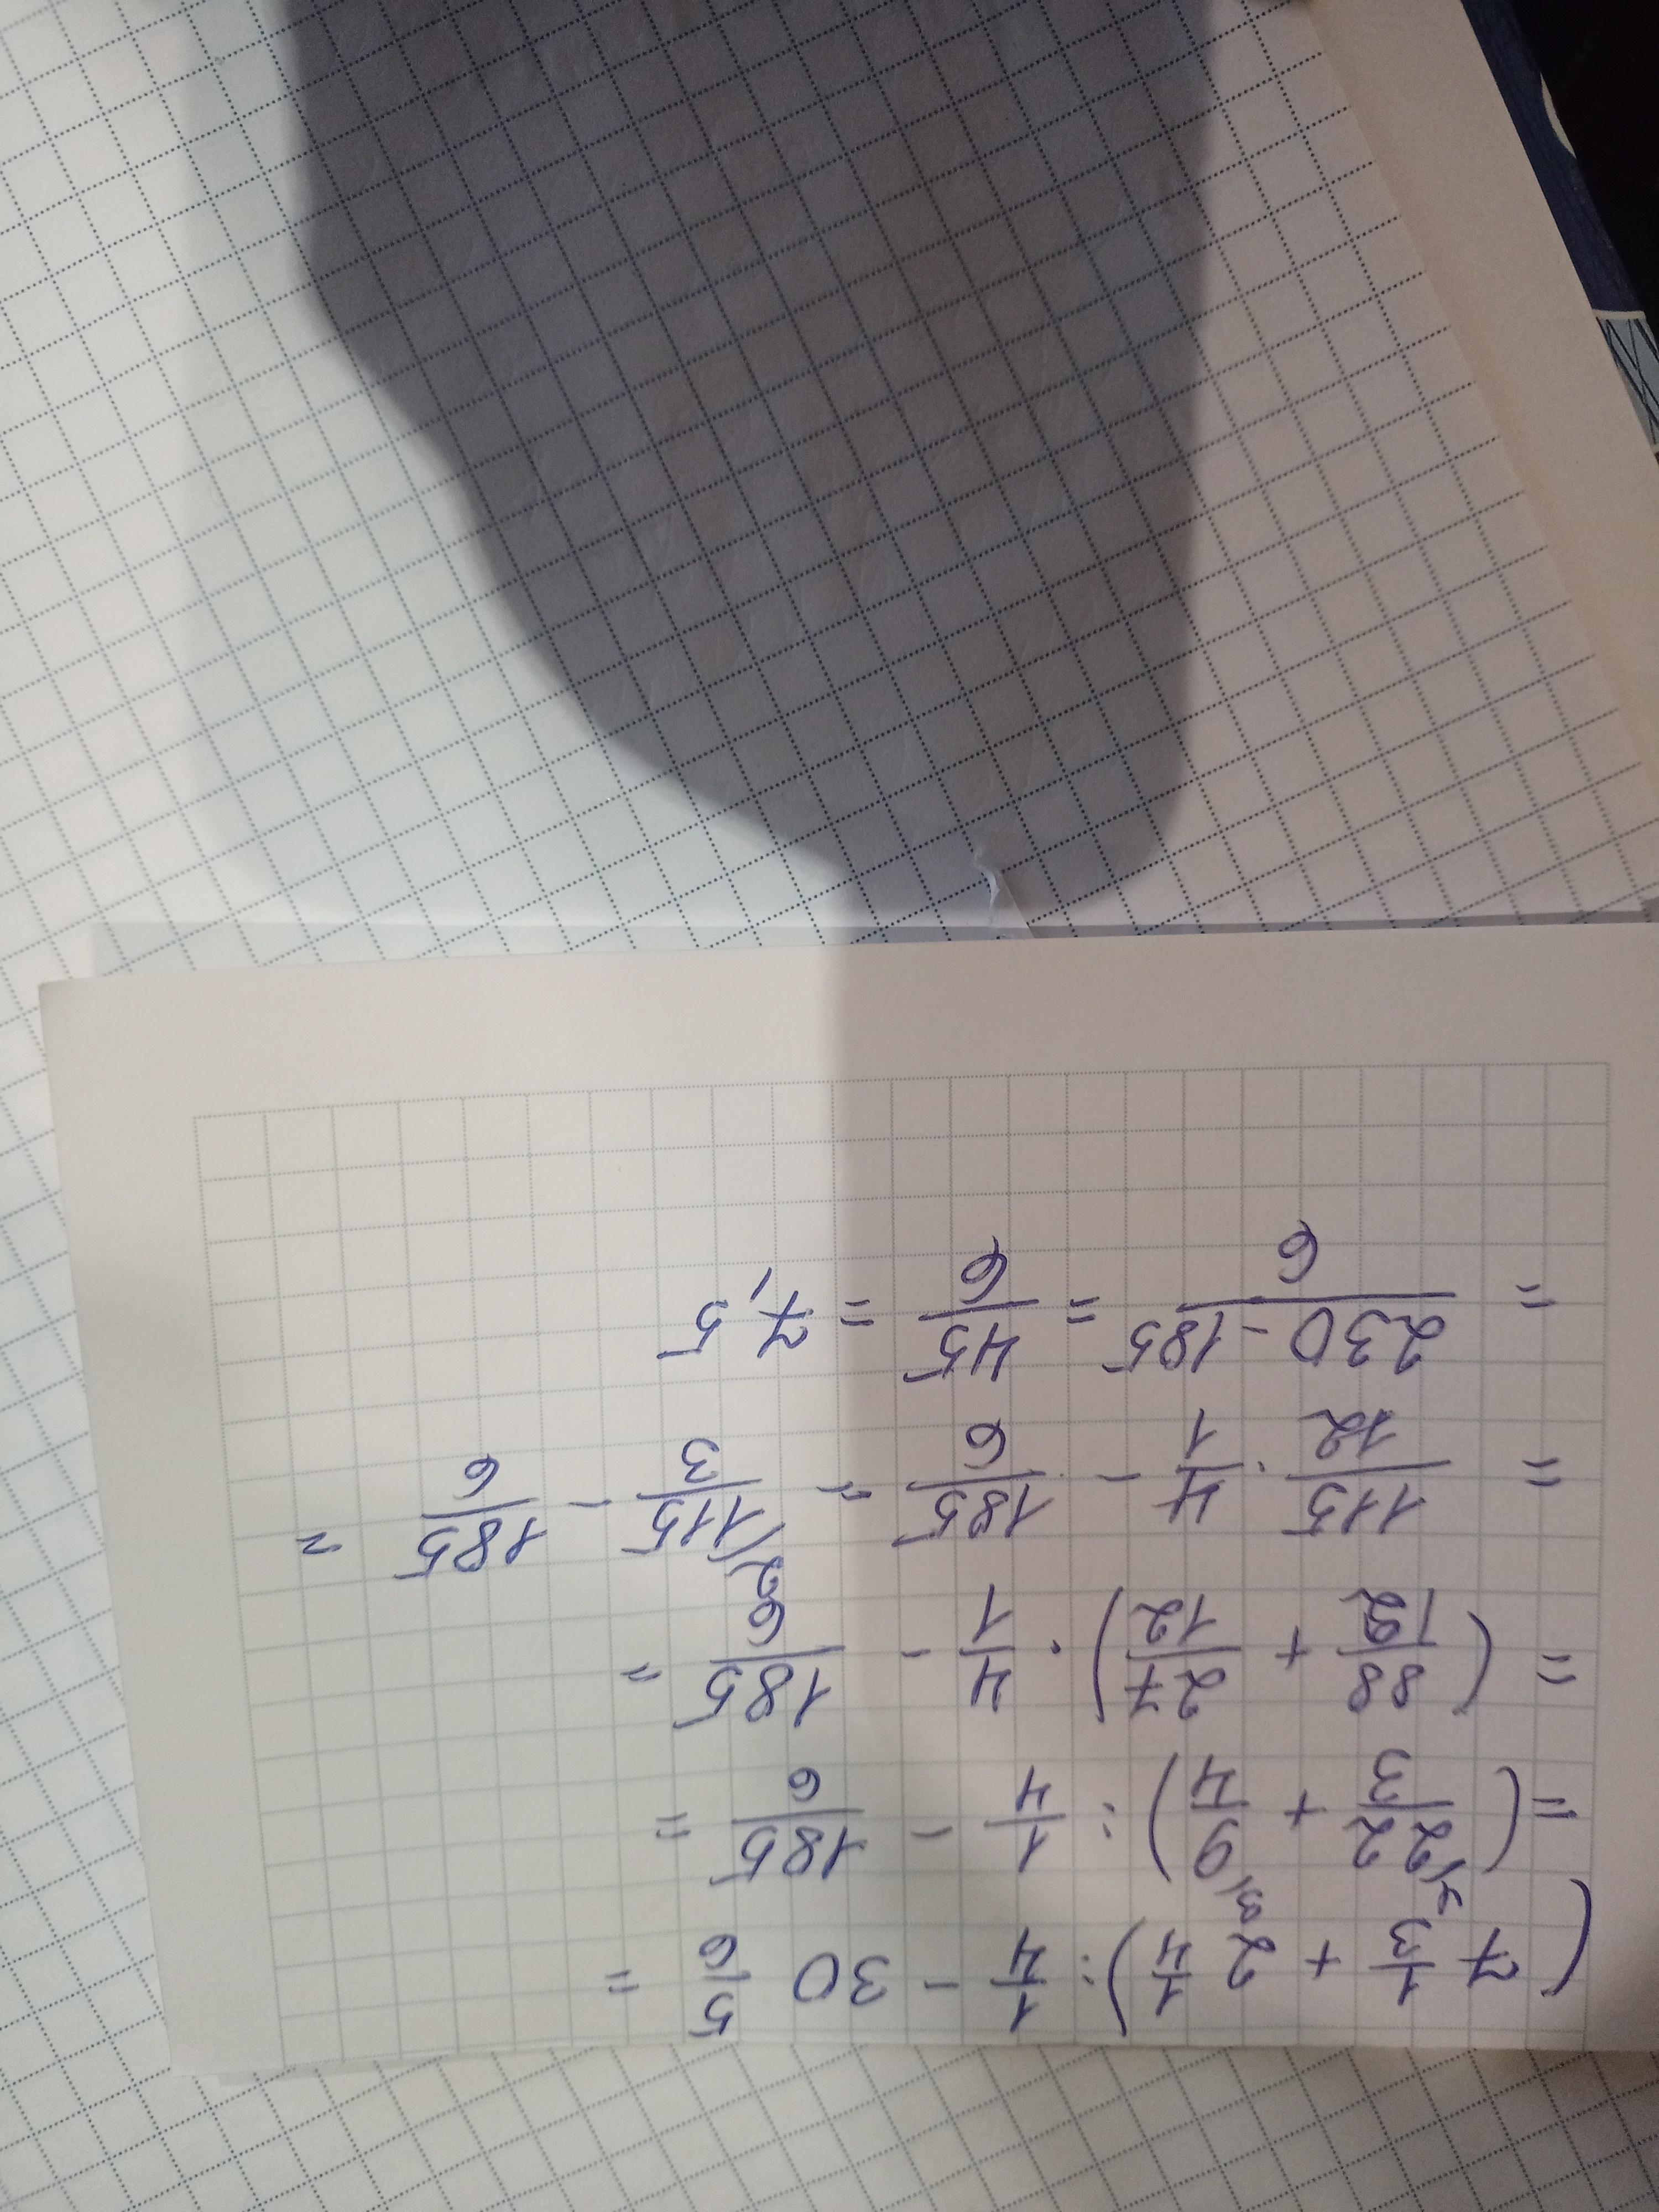 (7 1/3 + 2 1/4) : 1/4 - 30 5/6 =
= (22/3 + 9/4) : 1/4 - 185/6 =
= (88/12 + 27/12) · 4/1 - 185/6 =
= 115/12 · 4/1 - 185/6 = 115/3 - 185/6 =
= 230 - 185/6 = 45/6 = 7,5